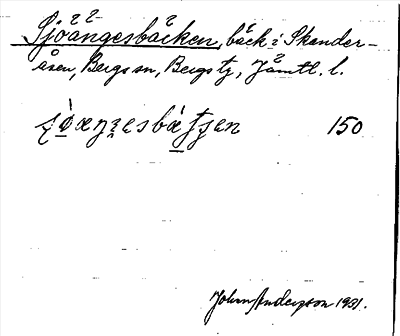 Sjöängesbäcken, bäck i Skander-
åsen, Bergs sn, Bergs tg, Jämtl. l.
150
Johan Anderzson 1931.